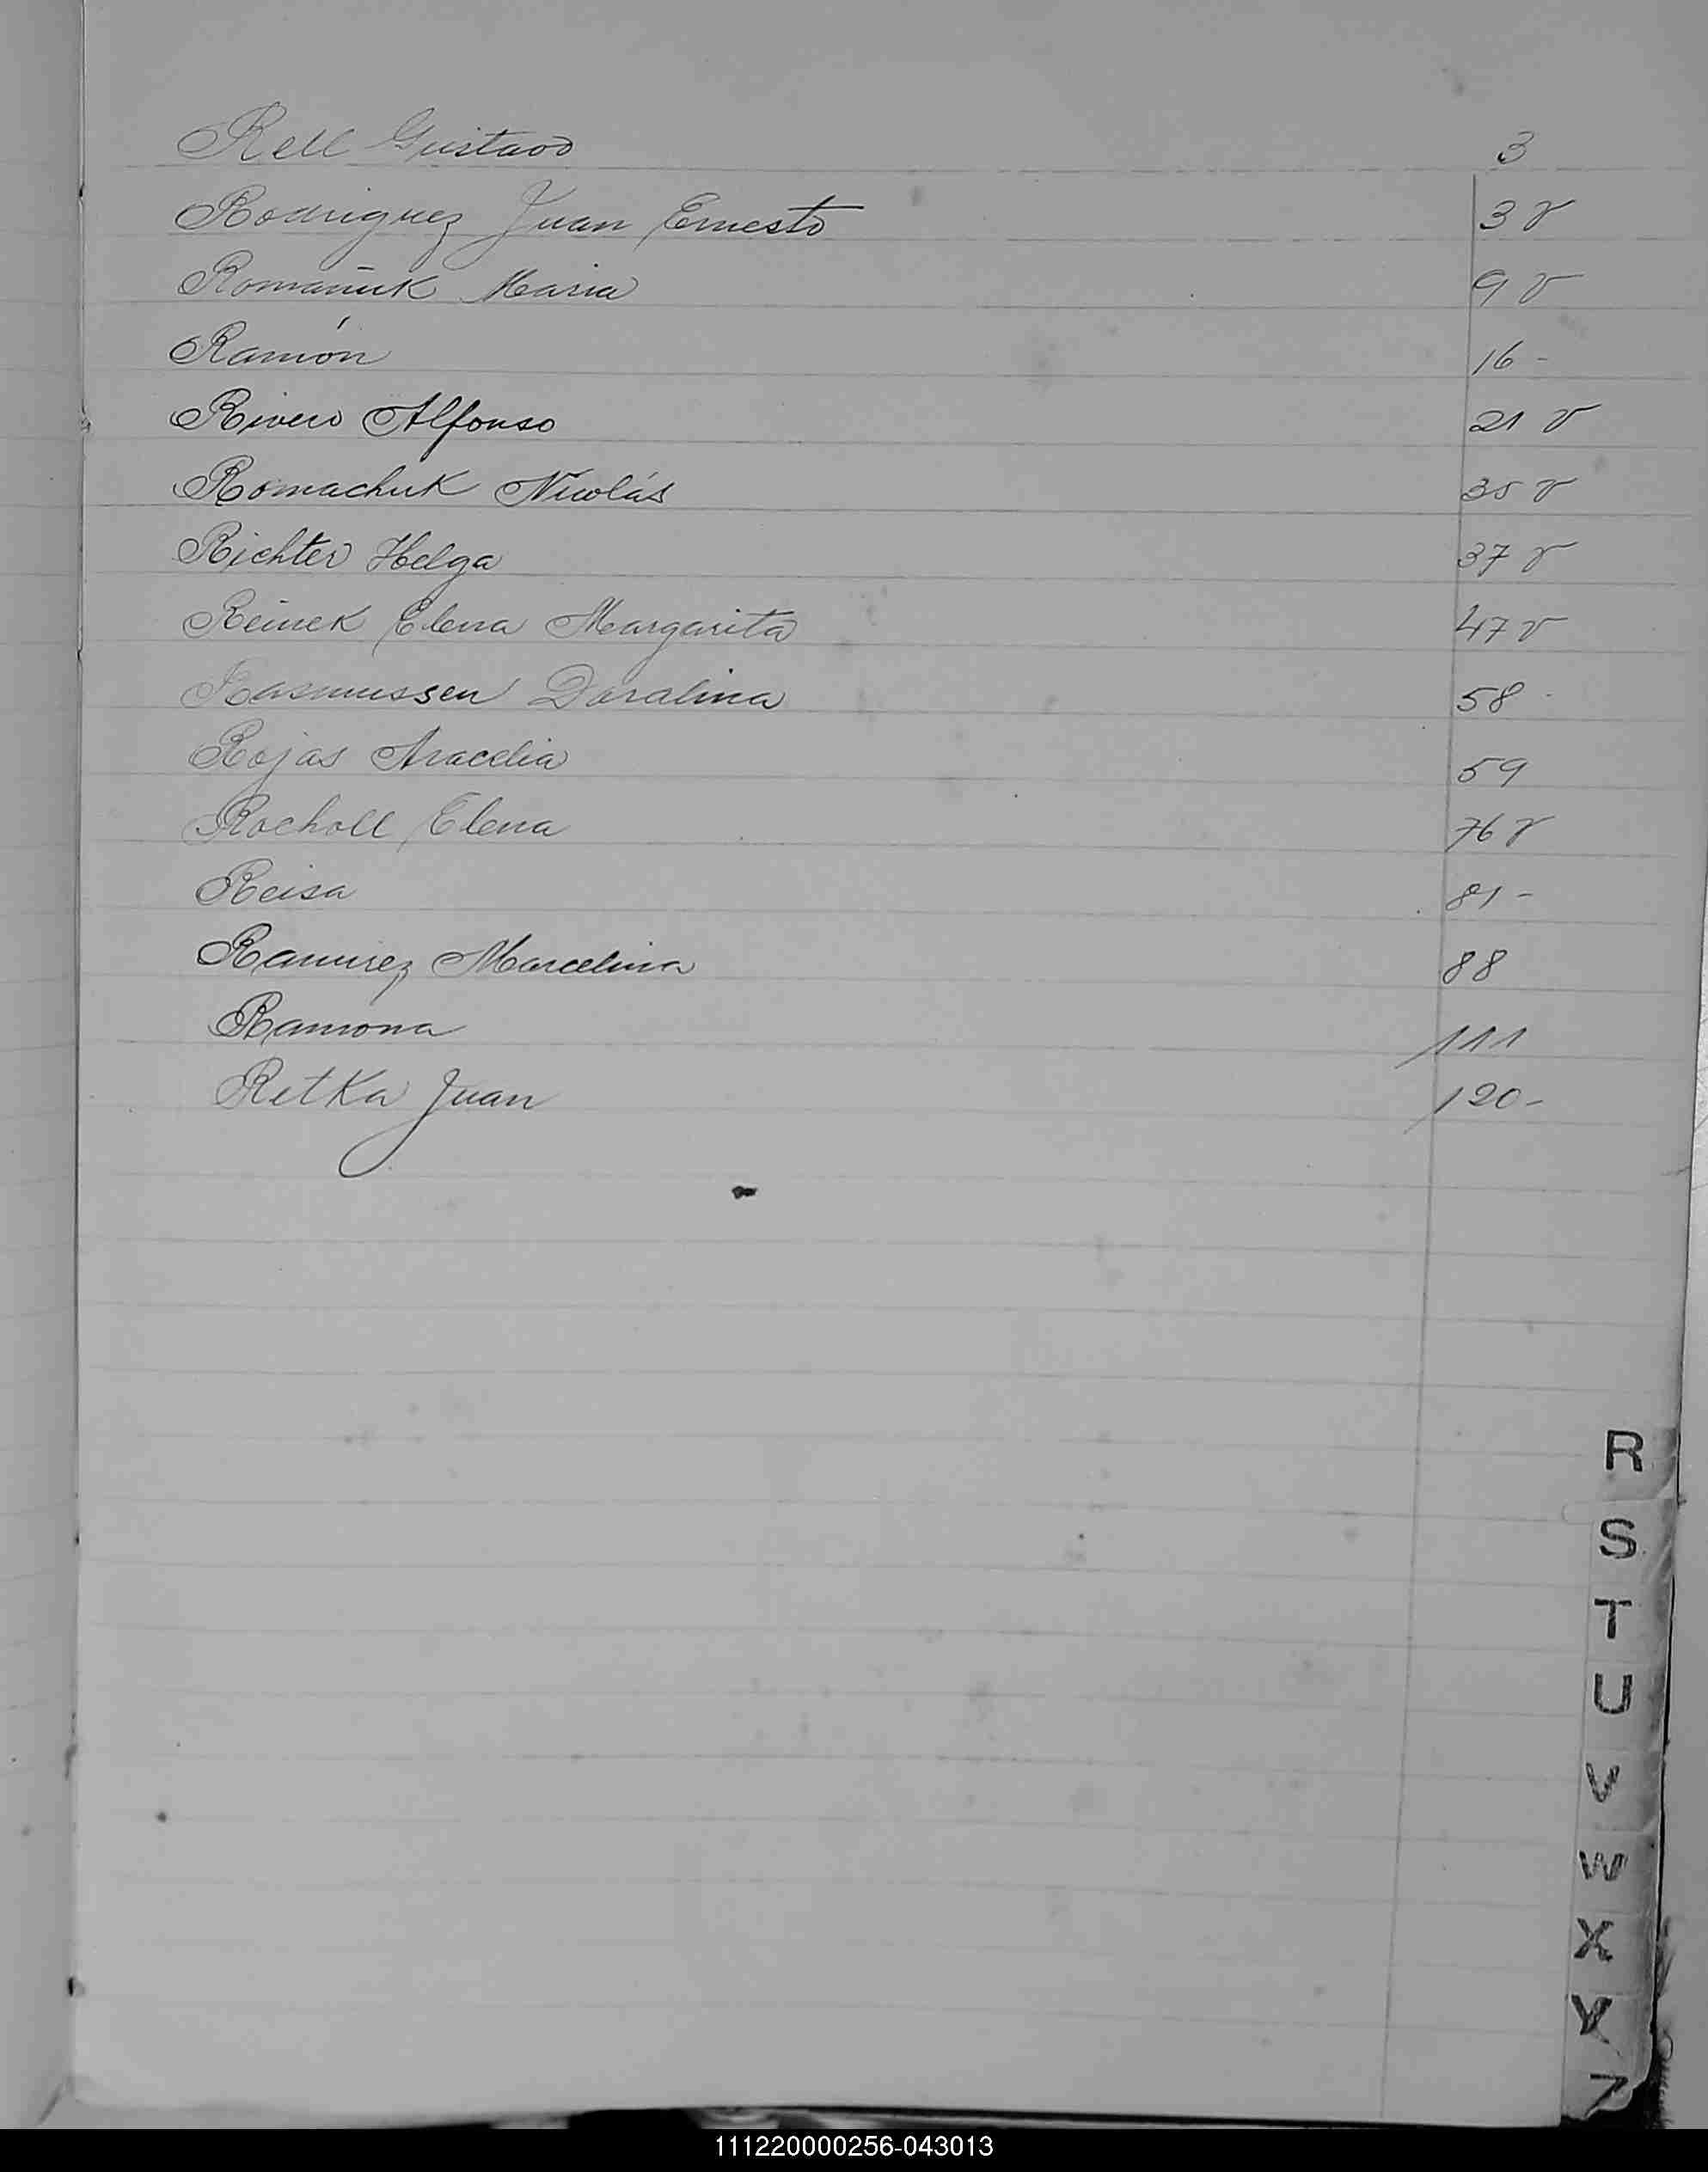 Rell Gustavo 3
Rodriguez Juan Ernesto 3 v
Romañuk Maria 9 v
Ramón 16 -
Rivero Alfonso 21 v
Romachuk Nicolás 35 v
Richter Helga 37 v
Reinek Elena Margarita 47 v
Rasmussen Doralina 58 -
Rojas Aracelia 59
Rocholl Elena 76 v
Reisa 81 -
Ramirez Marcelina 88
Ramona 111
Retka Juan 120 -
R
S
T
U
V
W
X
Y
Z
111220000256-043013